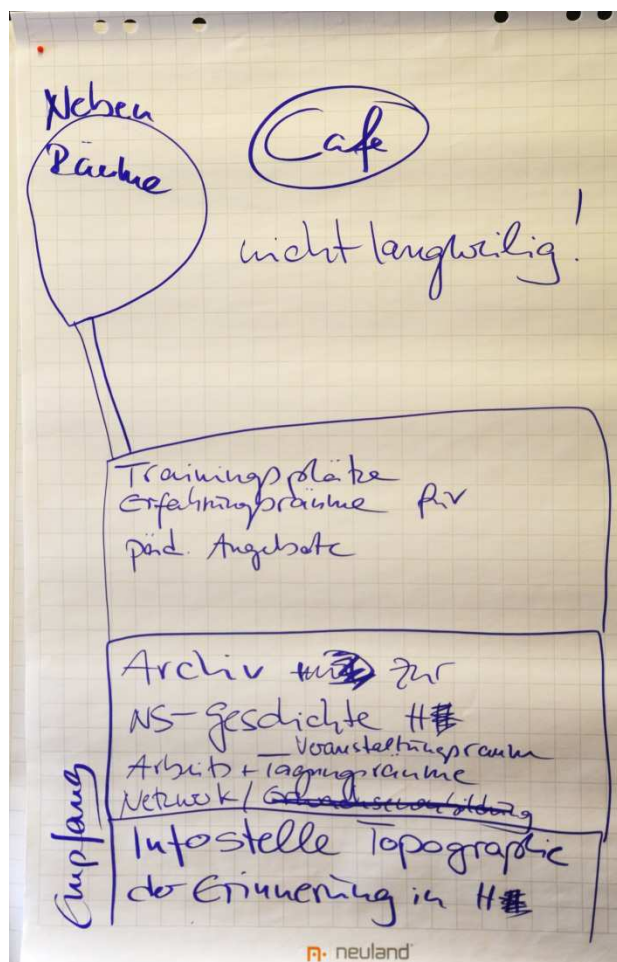 Neben
Räume
Cafe
nicht langweilig!
Trainingsplätze
Erfahrungsräume für
päd. Angebote
Archiv zur
NS-Geschichte H
Veranstaltungsraum
Arbeits + Tagungsräume
Netzwerk /
Empfang
Infostelle Topographie
der Erinnerung in H
neuland